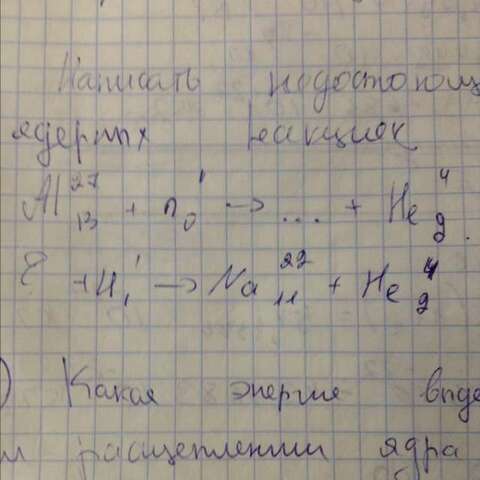 Написать недостающ
ядерных реакциях
Al 27 13 + n 1 0 → .... + He 4 2
? + H 1 1 → Na 22 11 + He 4 2
) Какая энергия выде
расщеплении ядра